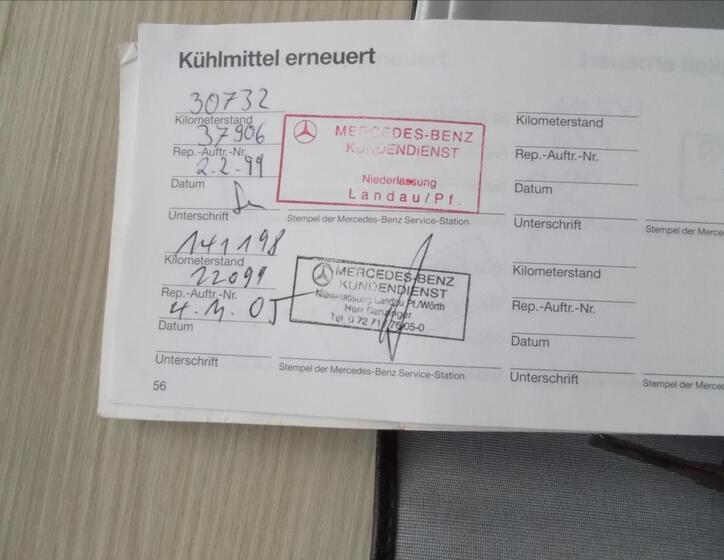 Kühlmittel erneuert
30732
Kilometerstand
37906
Rep.-Auftr.-Nr.
2.2.99
Datum
Unterschrift
MERCEDES-BENZ
KUNDENDIENST
Niederlassung
Landau/Pf.
Stempel der Mercedes-Benz Service-Station
Kilometerstand
Rep.-Auftr.-Nr.
Datum
Unterschrift
Stempel der Merce
141198
Kilometerstand
22099
Rep.-Auftr.-Nr.
4.11.05
Datum
Unterschrift
MERCEDES-BENZ
KUNDENDIENST
Niederlassung Landau Pf./Wörth
Herr
Tel. 0 72 71
05-0
Stempel der Mercedes-Benz Service-Station
Kilometerstand
Rep.-Auftr.-Nr.
Datum
Unterschrift
Stempel der Merced
56